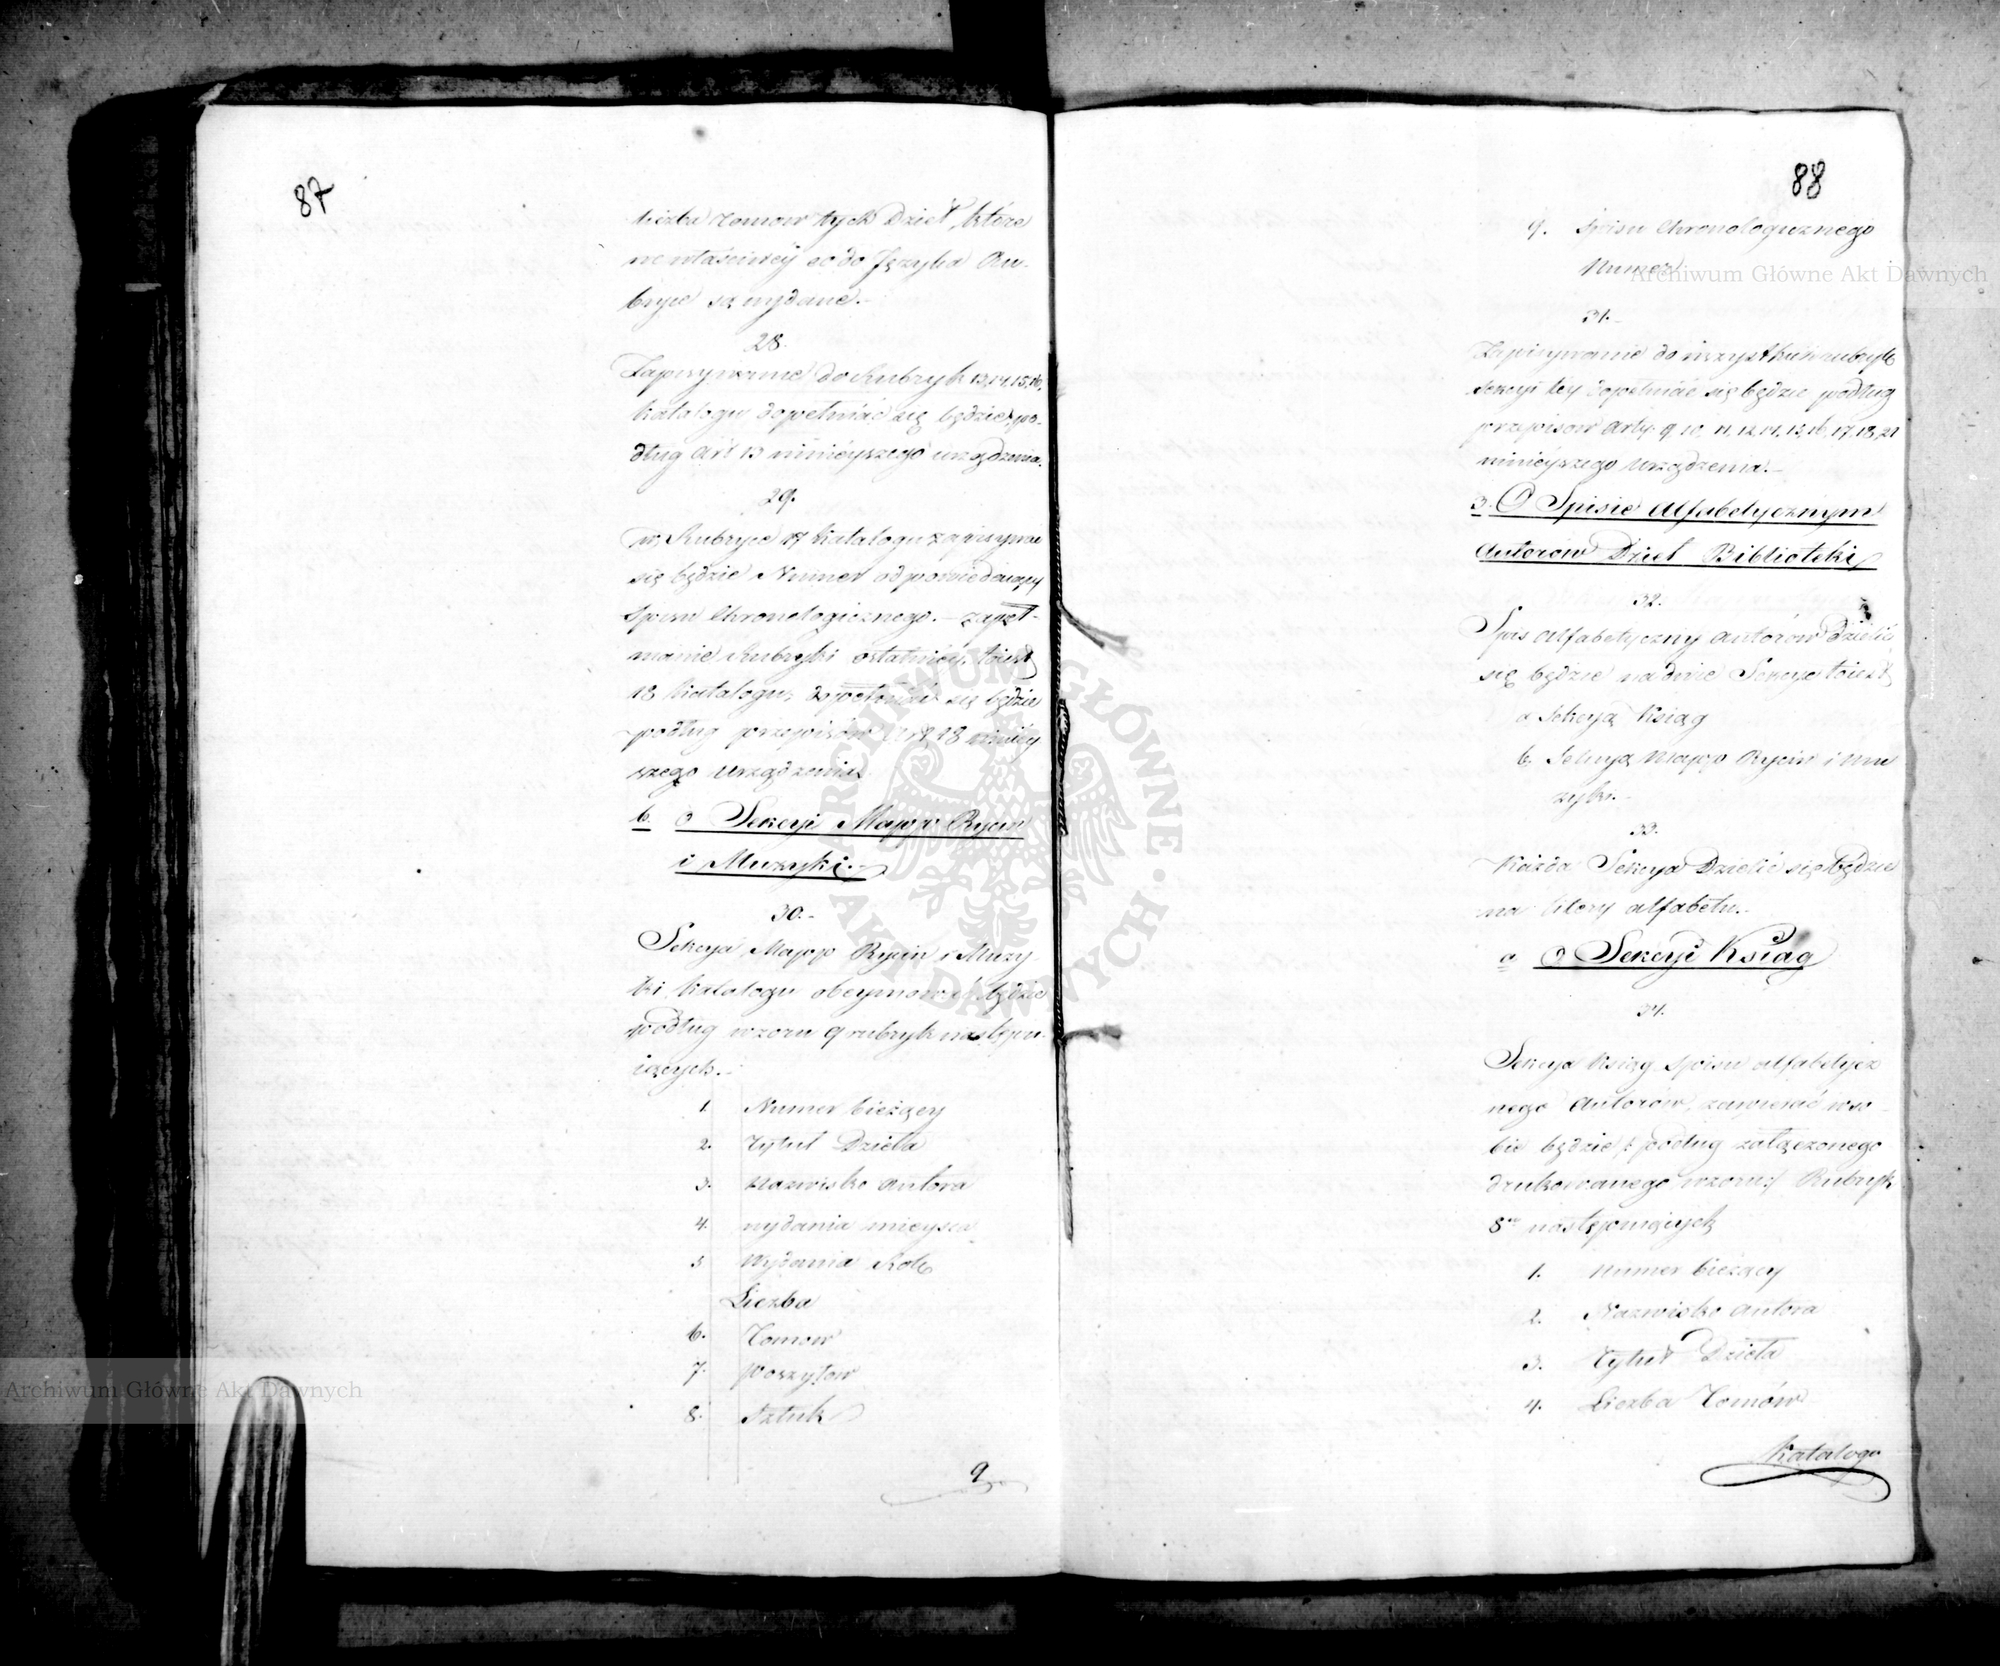 87
liczba tomow tych Dzieł, które
we właściwéy co do Języka Ru-
bryce są wydane.-
28.
Zapisywanie do Rubryk 13,14,15,16,
katalogu dopełniać się będzie po-
dług art 13 ninieyszego urządzenia.
29.
w Rubryce 17 katalogu zapisywać
się będzie Numer odpowiedaiący
Spisu Chronologicznego.- Zapeł-
nianie Rubryki ostatniéy, toiest
18 katalogu, dopełniać się będzie
podług przepisów 18 niniéy
szego urządzenia
b. O Sekcyi Mapp Rycin
i Muzyki.-
30.-
Sekcya Mapp Rycin i Muzy
ki katalogu obeymować będzie
podług wzoru 9 rubryk nastepu-
iących.-
1. Numer bieżący
2. Tytuł Dzieła
3. Nazwisko Autora
4. wydania mieysca
5 Wydania Rok
Liczba
6. Tomow
7. Poszytow
8. Sztuk
9
88
9. Spisu Chronologicznego
Numer
31.-
Zapisywanie do wszystkich rubryk
Sekcyi tey dopełniać się będzie podług
przepisow Arty. 9, 10, 11, 12, 14, 15, 16, 17, 18, 21
ninieyszego Urządzenia.-
3. O Spisie Alfabetycznym
Autorów Dzieł Biblioteki
32.
Spis Alfabetyczny Autorów Dzielić
się będzie na dwie Sekcye toiest
a Sekcyą Ksiąg
b. Sekcyą Mapp Rycin i Mu
zyki.-
33.
Każda Sekcya Dzielić się będzie
na litery alfabetu.-
a O Sekcyi Ksiąg
34.
Sekcya Ksiąg Spisu alfabetycz
nego Autorów, zawierać w so-
bie będzie /: podług załączonego
drukowanego wzoru :/ Rubryk
8m następuiących
1. Numer bieżący
2. Nazwisko Autora
3. Tytuł Dzieła
4. Liczba Tomów
Katalogo
Archiwum Główne Akt Dawnych
ARCHIWUM GŁÓWNE AKT DAWNYCH
Archiwum Główne Akt Dawnych